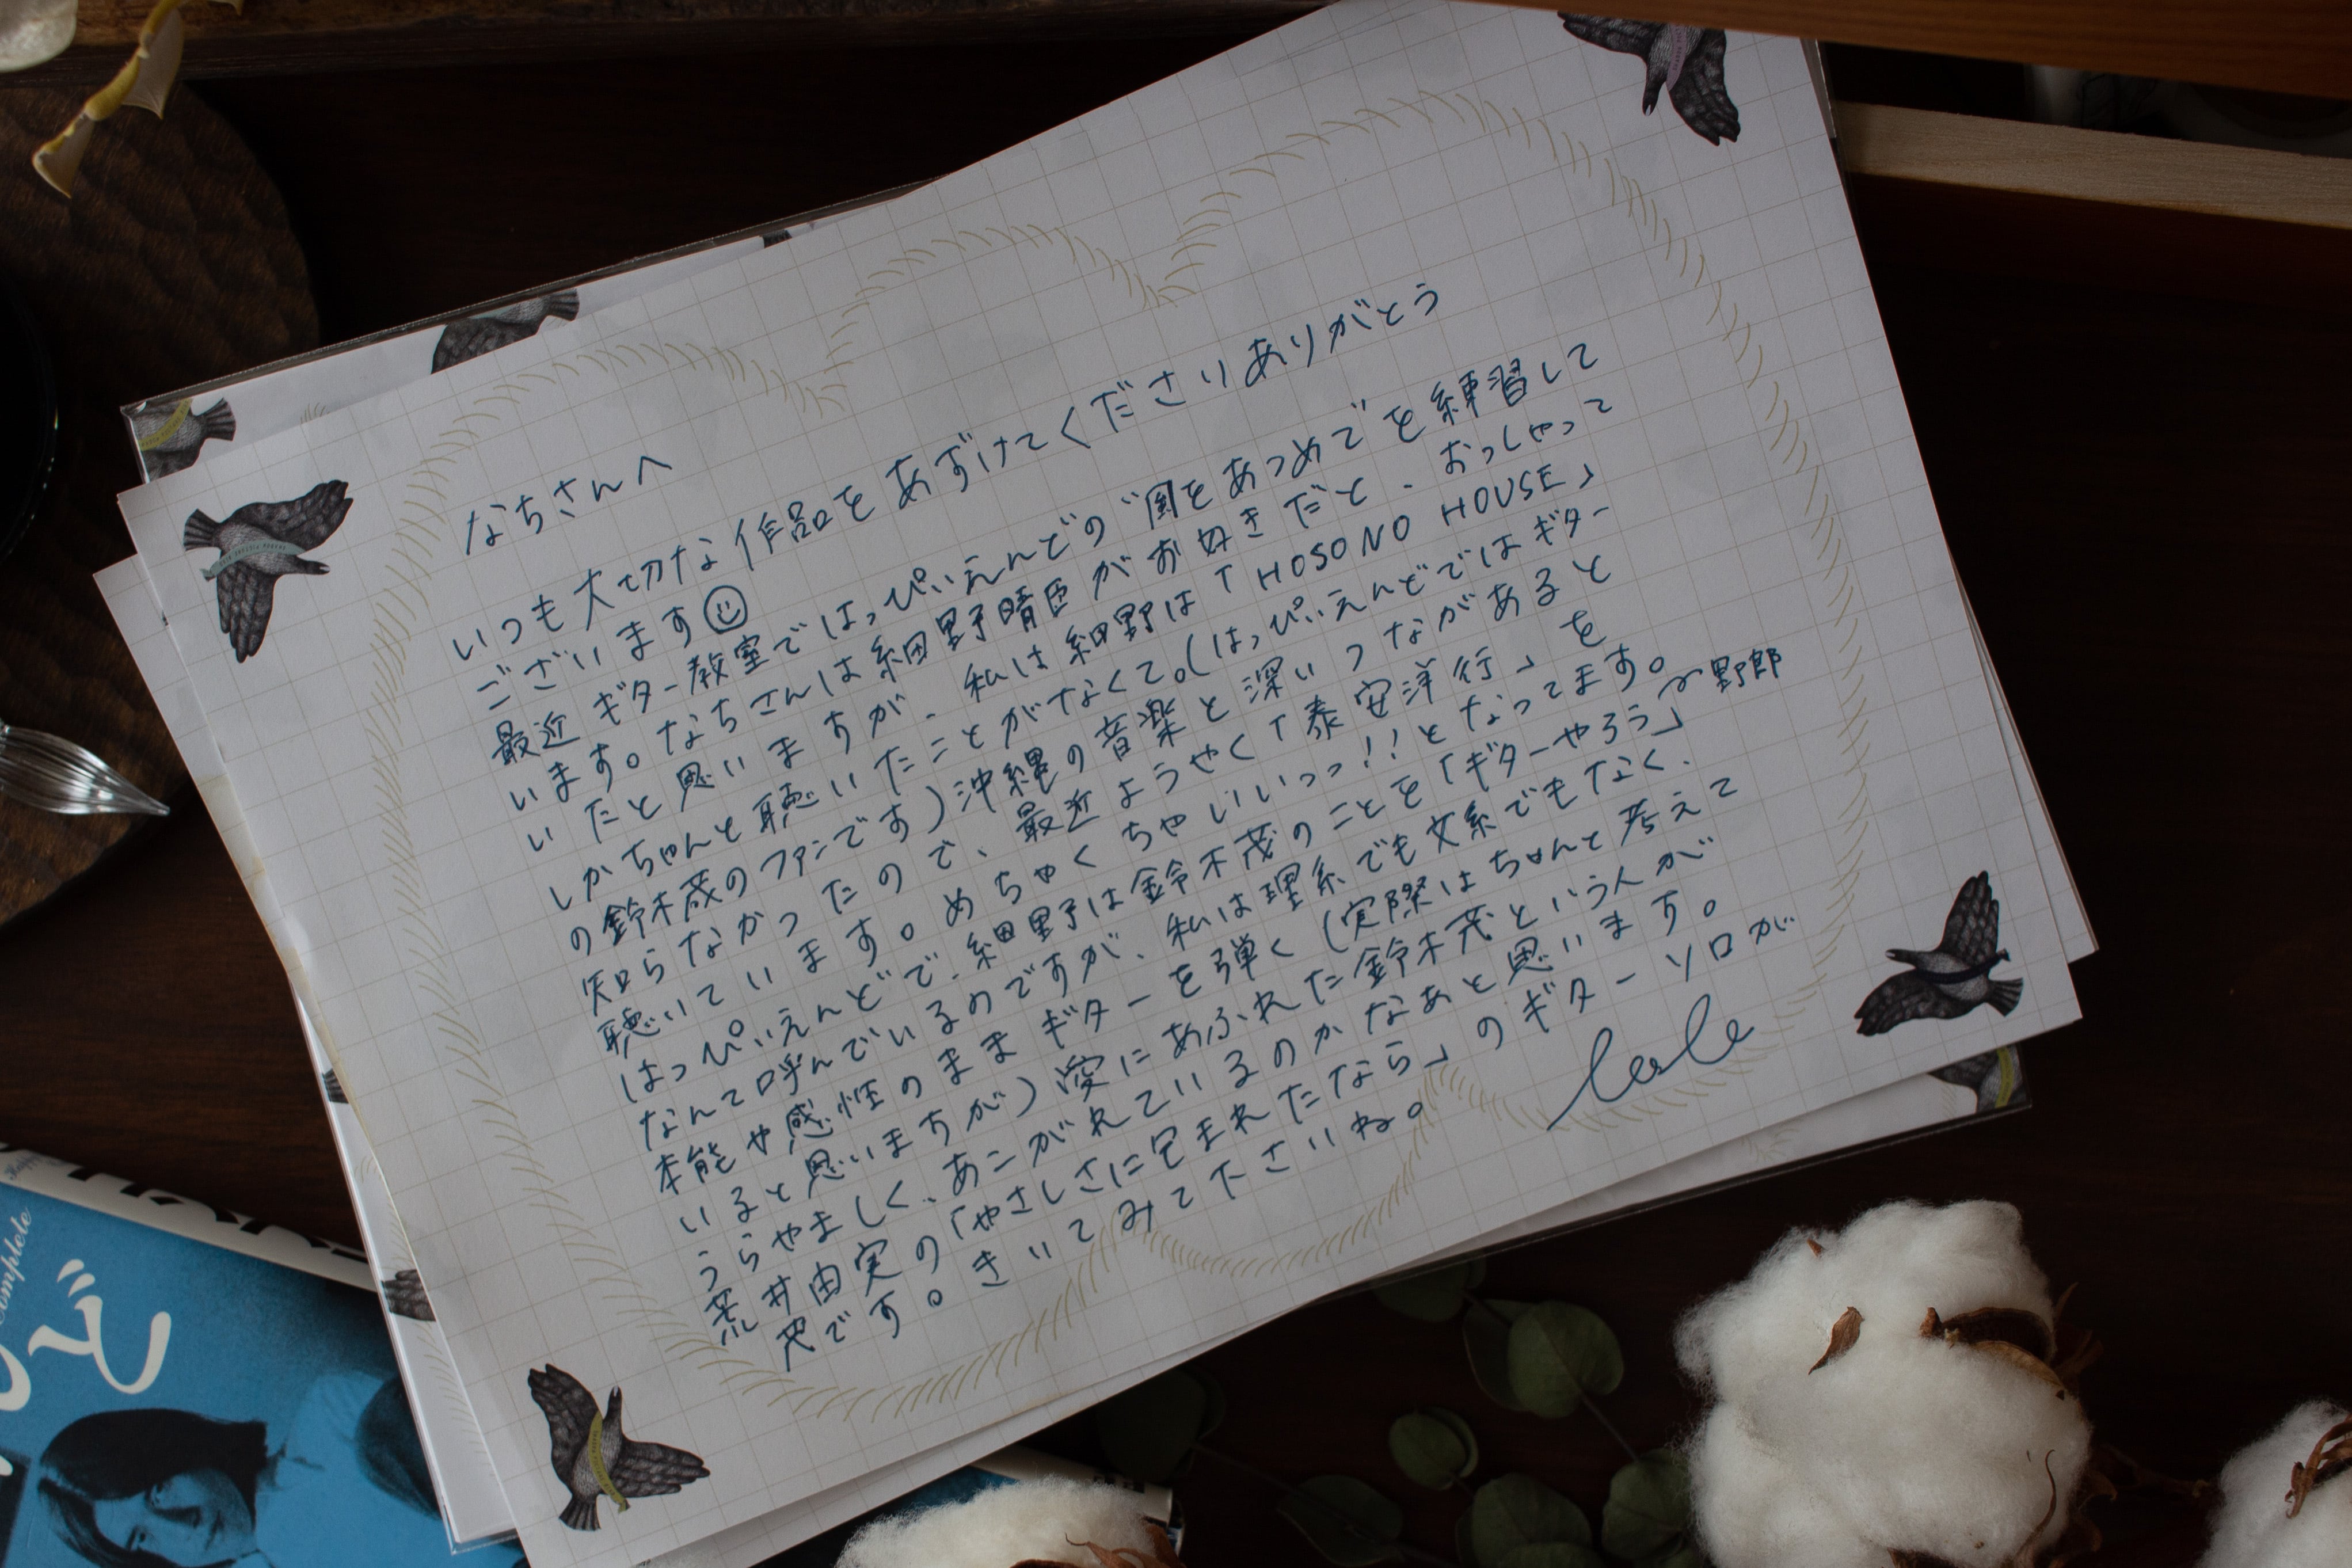 なちさんへ
いつも大切な作品をあずけてくださりありがとう
ございます
最近 ギター教室ではっぴいえんどの"風をあつめて"を練習して
います。なちさんは細野晴臣がお好きだと、おっしゃって
いたと思いますが、私は細野は「HOSONO HOUSE」
しかちゃんと聴いたことがなくて。(はっぴいえんどではギター
の鈴木茂のファンです)沖縄の音楽と深いつながあると
知らなかったので、最近ようやく「泰安洋行」を
聴いています。めちゃくちゃいいっっ!!となってます。
はっぴいえんどで、細野は鈴木茂のことを「ギターやろう」野郎
なんて呼んでいるのですが、私は理系でも文系でもなく、
本能や感性のままギターを弾く(実際はちゃんと考えて
いると思いますが)愛にあふれた鈴木茂という人が
うらやましく、あこがれているのかなあと思います。
荒井由実の「やさしさに包まれたなら」のギターソロが
です。きいてみて下さいね。
complete
で